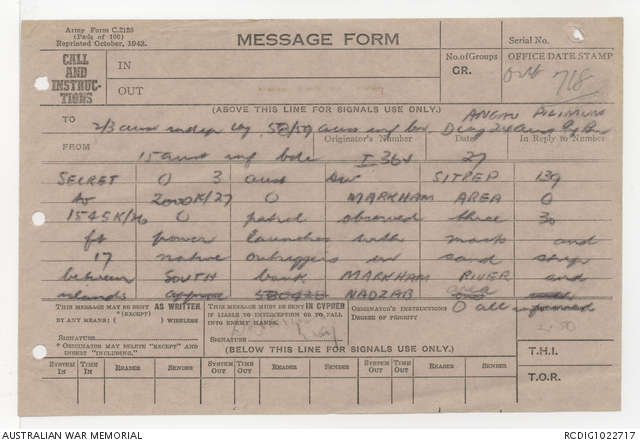 Army Form C.2128
(Pads of 100)
Reprinted October, 1942.
MESSAGE FORM
Serial No.
CALL AND INSTRUCTIONS
IN
OUT
No. of Groups
GR.
OFFICE DATE STAMP
718
(ABOVE THIS LINE FOR SIGNALS USE ONLY.)
TO
2/3 aust indep coy 58/59 aust inf bn D coy 24 aust inf bn
ANGAU
FROM
Originator's Number
Date
In Reply to Number
15 aust inf bde I 364 27
SECRET O 3 aust div SITREP 139
to 2000K/27 O MARKHAM AREA O
1545K/26 O patrol observed three 30
ft power launches with mast and
17 native outriggers in sand strip
between SOUTH bank MARKHAM RIVER and
islands approx 580428 NADZAB area
O all informed
THIS MESSAGE MAY BE SENT AS WRITTEN.
* (EXCEPT)
BY ANY MEANS: ( ) WIRELESS
SIGNATURE
* ORIGINATOR MAY DELETE "EXCEPT" AND INSERT "INCLUDING."
THIS MESSAGE MUST BE SENT IN CYPHER
IF LIABLE TO INTERCEPTION OR TO FALL INTO ENEMY HANDS.
SIGNATURE
ORIGINATOR'S INSTRUCTIONS
DEGREE OF PRIORITY
(BELOW THIS LINE FOR SIGNALS USE ONLY.)
T.H.I.
T.O.R.
SYSTEM IN
TIME IN
READER
SENDER
SYSTEM OUT
TIME OUT
READER
SENDER
SYSTEM OUT
TIME OUT
READER
SENDER
AUSTRALIAN WAR MEMORIAL
RCDIG1022717